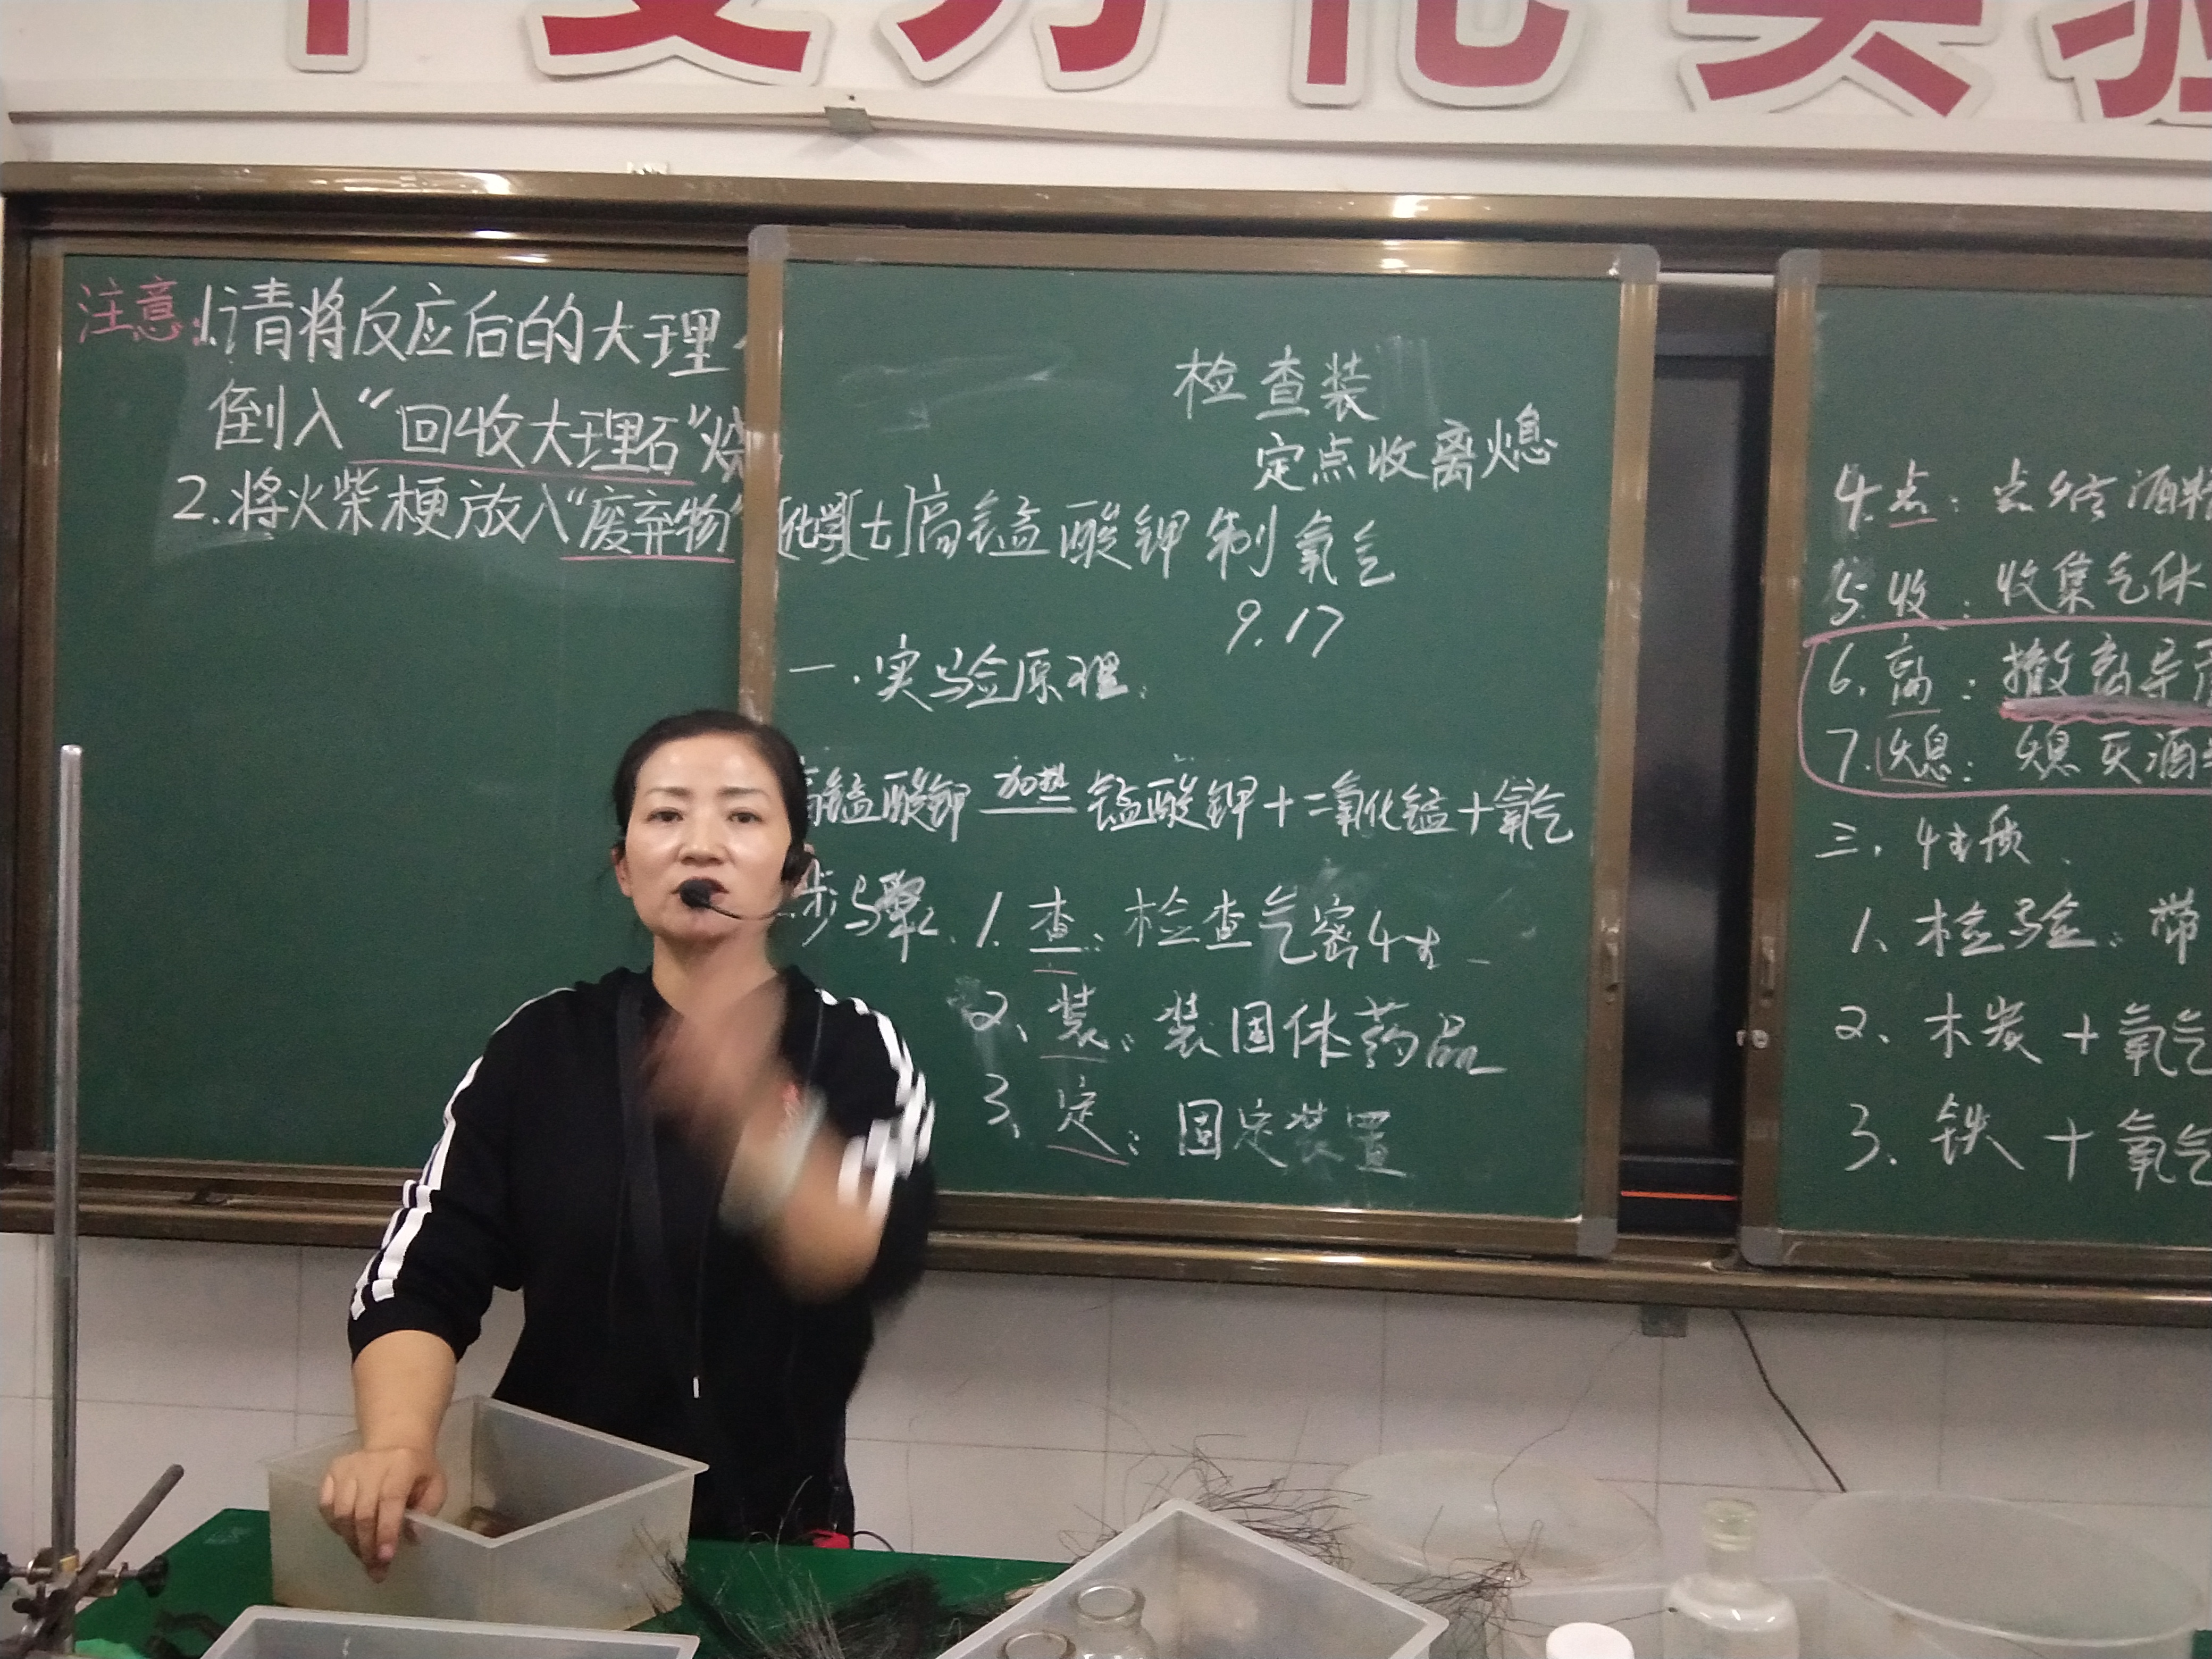 注意:1.请将反应后的大理
倒入“回收大理石”烧
2.将火柴梗放入“废弃物”
检查装
定点收离熄
[化学][七]高锰酸钾制氧气
9.17
一.实验原理:
高锰酸钾 加热 锰酸钾+二氧化锰+氧气
步骤.1.查:检查气密性
2、装:装固体药品
3、定:固定装置
4.点:点给酒精
5.收:收集气体
6.离:撤离导
7.熄:熄灭酒
三.性质.
1、检验:带
2、木炭+氧气
3.铁+氧气